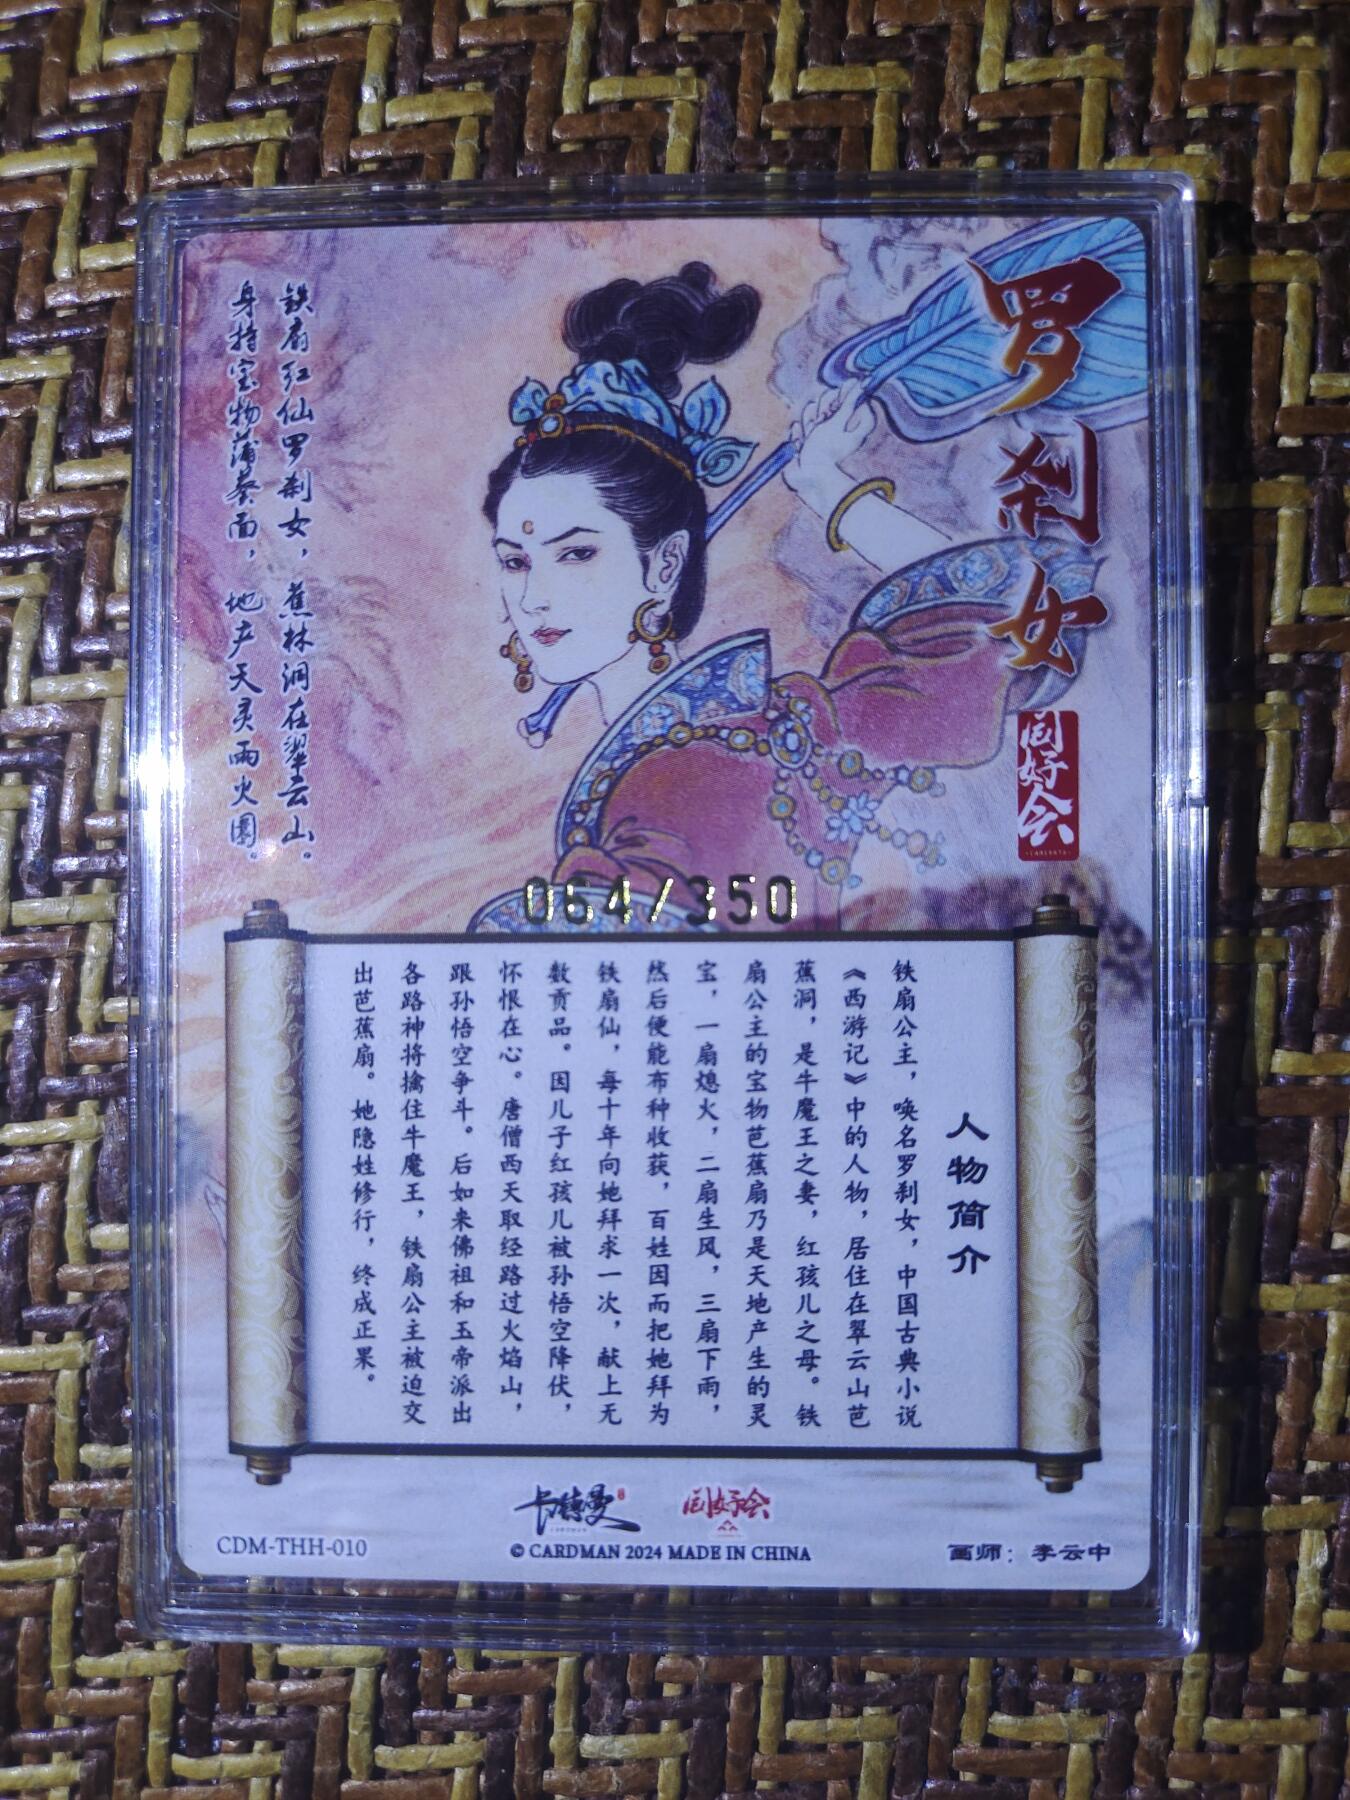 罗刹女
囼好会
铁扇红仙罗刹女，蕉林洞在翠云山。
身持宝物蒲葵面，地产天灵雨火圜。
064/350
人物简介
铁扇公主，唤名罗刹女，中国古典小说
《西游记》中的人物，居住在翠云山芭
蕉洞，是牛魔王之妻，红孩儿之母。铁
扇公主的宝物芭蕉扇乃是天地产生的灵
宝，一扇熄火，二扇生风，三扇下雨，
然后便能布种收获，百姓因而把她拜为
铁扇仙，每十年向她拜求一次，献上无
数贡品。因儿子红孩儿被孙悟空降伏，
怀恨在心。唐僧西天取经路过火焰山，
跟孙悟空争斗。后如来佛祖和玉帝派出
各路神将擒住牛魔王，铁扇公主被迫交
出芭蕉扇。她隐姓修行，终成正果。
卡德曼
囼好会
CDM-THH-010
© CARDMAN 2024 MADE IN CHINA
画师：李云中